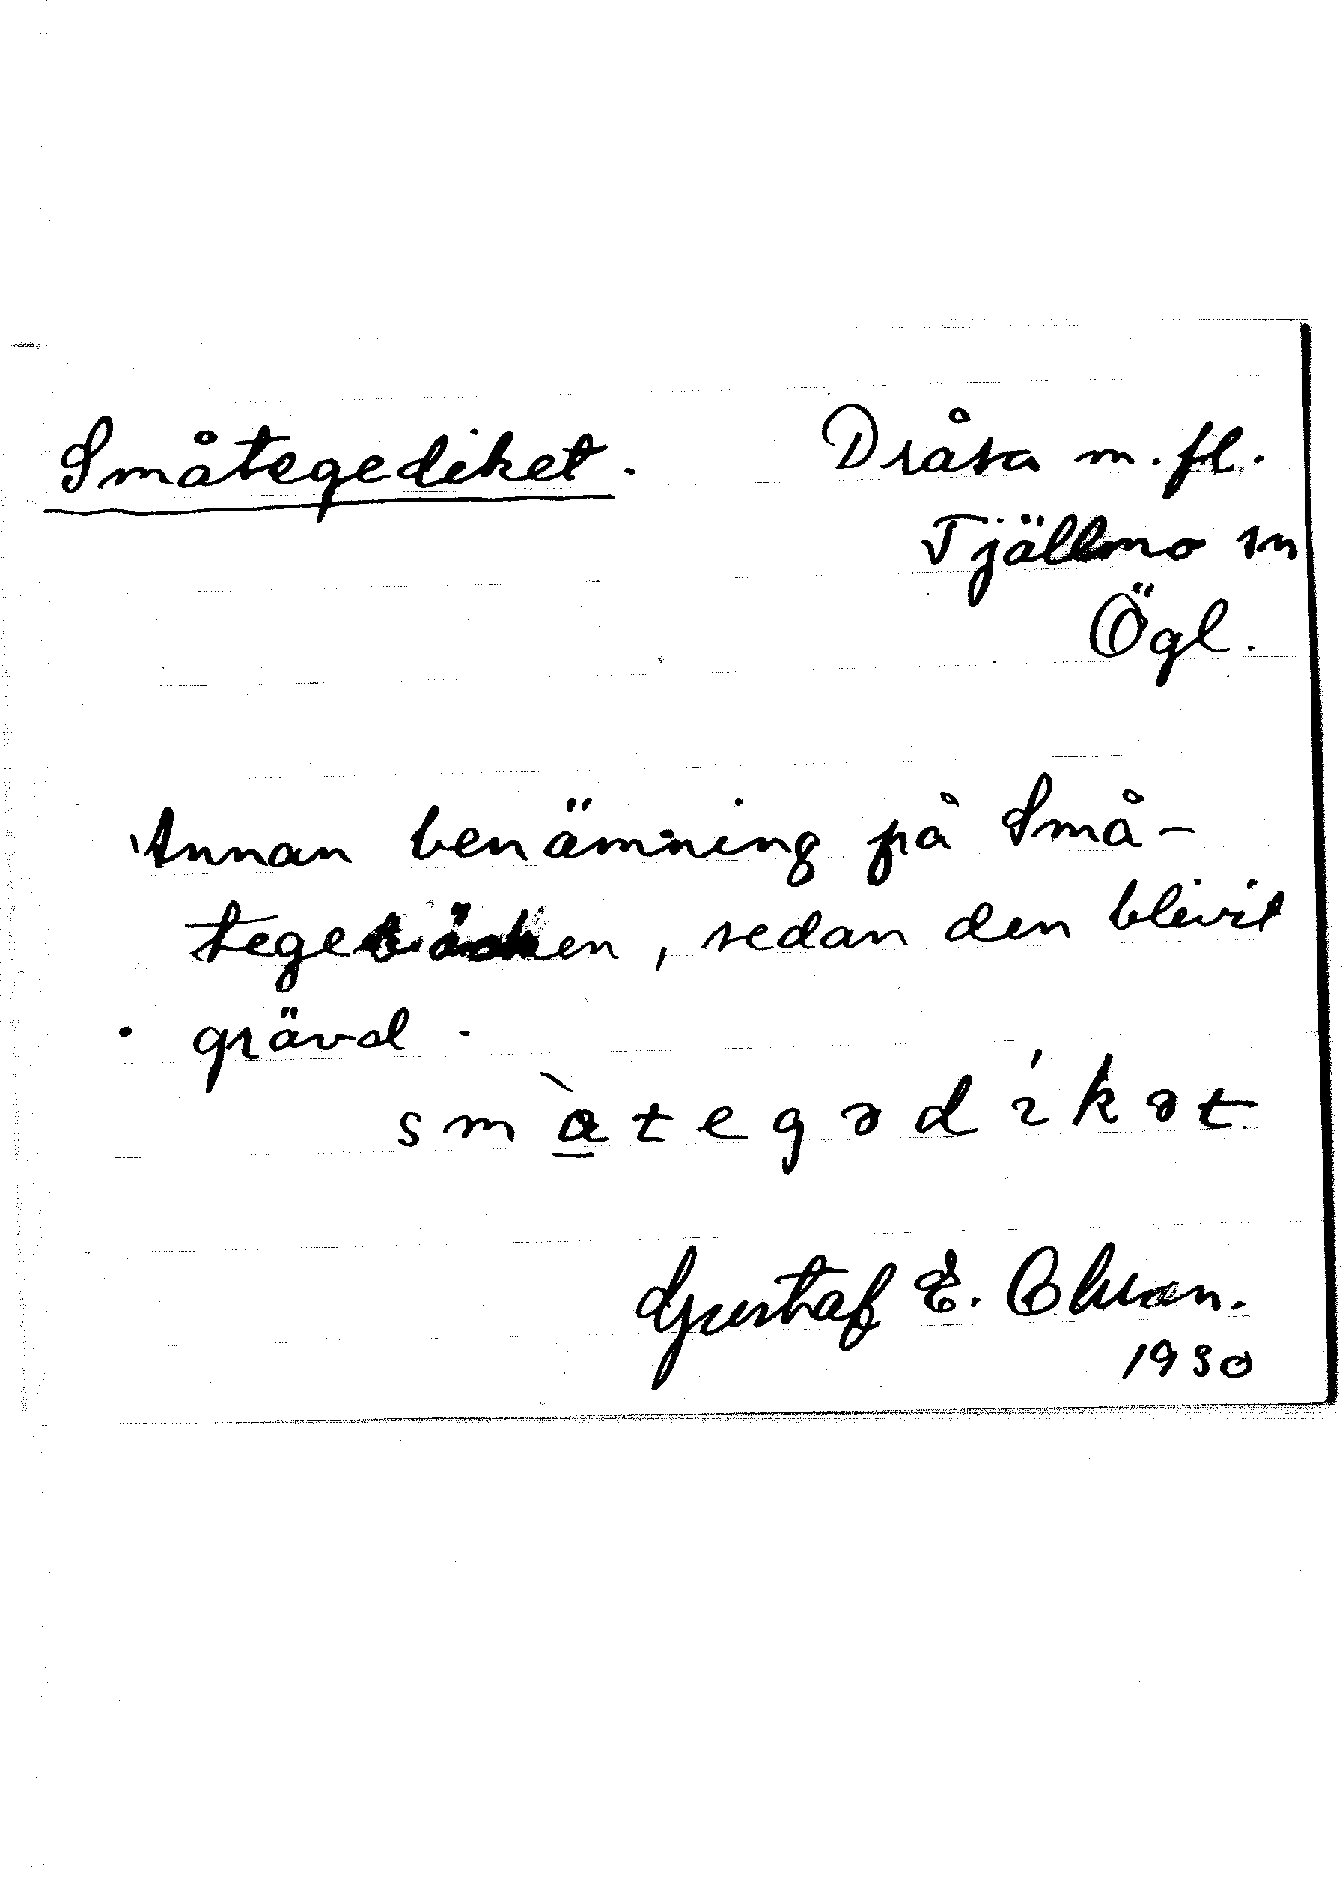 Småtegediket. Dråsa m. fl.
Tjällmo sn
Ögl.
Annan benämning på Små-
tegebäcken, sedan den blivit
grävd.
smàtegədíkət
Gustaf E. Ohlson.
1930